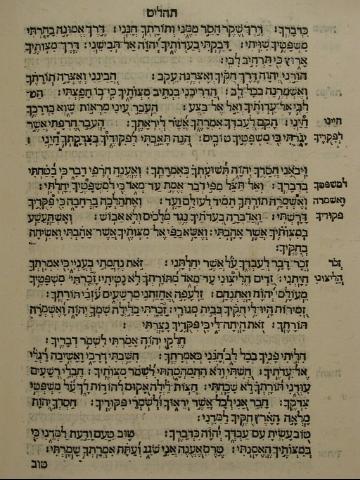 תהלים
כדברך: דרך שקר הסר ממני ותורתך חנני: דרך אמונה בחרתי
משפטיך שויתי: דבקתי בעדותיך יהוה אל תבישני: דרך מצותיך
ארוץ כי תרחיב לבי:
הורני יהוה דרך חקיך ואצרנה עקב: הבינני ואצרה תורתך
ואשמרנה בכל לב: הדריכני בנתיב מצותיך כי בו חפצתי: הט
לבי אל עדותיך ואל אל בצע: העבר עיני מראות שוא בדרכך
חייני: הקם לעבדך אמרתך אשר ליראתך: העבר חרפתי אשר
יגרתי כי משפטיך טובים: הנה תאבתי לפקודיך בצדקתך חייני:
חייני
לפקודיך
ויבאני חסדך יהוה תשועתך כאמרתך: ואענה חרפי דבר כי בטחתי
בדברך: ואל תצל מפי דבר אמת עד מאד כי למשפטיך יחלתי:
ואשמרה תורתך תמיד לעולם ועד: ואתהלכה ברחבה כי פקודיך
דרשתי: ואדברה בעדותיך נגד מלכים ולא אבוש: ואשתעשע
במצותיך אשר אהבתי: ואשא כפי אל מצותיך אשר אהבתי ואשיחה
בחקיך:
למשפטך
ואשמרה
פקודיך
זכר דבר לעבדך על אשר יחלתני: זאת נחמתי בעניי כי אמרתך
חיתני: זדים הליצוני עד מאד מתורתך לא נטיתי: זכרתי משפטיך
מעולם יהוה ואתנחם: זלעפה אחזתני מרשעים עזבי תורתך:
זמירות היו לי חקיך בבית מגורי: זכרתי בלילה שמך יהוה ואשמרה
תורתך: זאת היתה לי כי פקודיך נצרתי:
זכר
הליצוני
חלקי יהוה אמרתי לשמר דבריך:
חליתי פניך בכל לב חנני כאמרתך: חשבתי דרכי ואשיבה רגלי
אל עדתיך: חשתי ולא התמהמהתי לשמר מצותיך: חבלי רשעים
עודני תורתך לא שכחתי: חצות לילה אקום להודות לך על משפטי
צדקך: חבר אני לכל אשר יראוך ולשמרי פקודיך: חסדך יהוה
מלאה הארץ חקיך למדני:
טוב עשית עם עבדך יהוה כדברך: טוב טעם ודעת למדני כי
במצותיך האמנתי: טרם אענה אני שגג ועתה אמרתך שמרתי:
טוב